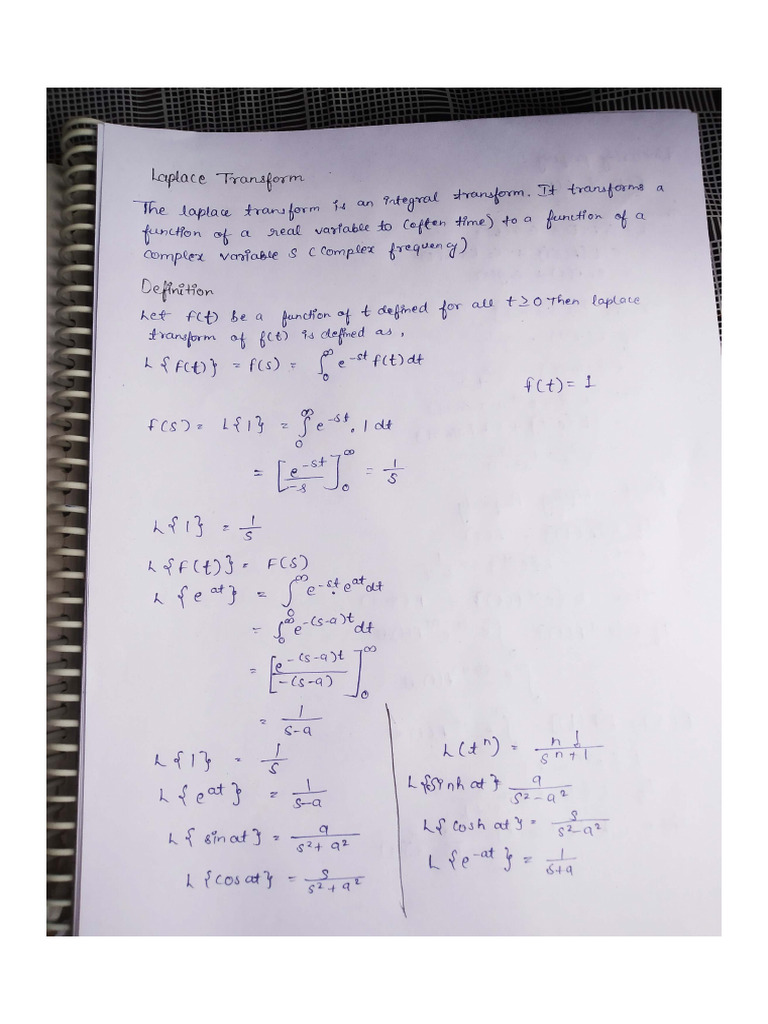 Laplace Transform
The laplace transform is an integral transform. It transforms a
function of a real variable to (often time) to a function of a
complex variable s (complex frequency)
Definition
Let f(t) be a function of t defined for all t ≥ 0 Then laplace
transform of f(t) is defined as,
L{f(t)} = f(s) = ∫₀^∞ e^-st f(t) dt
f(t) = 1
f(s) = L{1} = ∫₀^∞ e^-st . 1 dt
= [e^-st / -s]₀^∞ = 1/s
L{1} = 1/s
L{f(t)} = F(s)
L{e^at} = ∫₀^∞ e^-st . e^at dt
= ∫₀^∞ e^-(s-a)t dt
= [e^-(s-a)t / -(s-a)]₀^∞
= 1/s-a
L{1} = 1/s
L{e^at} = 1/s-a
L{sin at} = a/s²+a²
L{cos at} = s/s²+a²
L(t^n) = n!/s^n+1
L{sinh at} a/s²-a²
L{cosh at} = s/s²-a²
L{e^-at} = 1/s+a